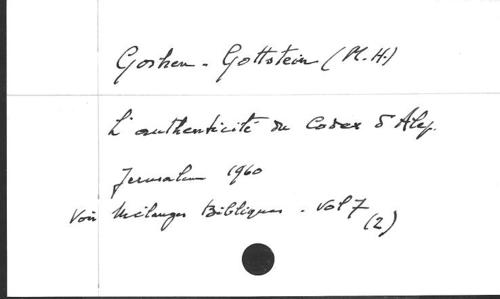 Goshen-Gottstein (M.H.)
L'authenticité du Codex d'Alep.
Jerusalem 1960
Voir Mélanges Bibliques. Vol 7
(2)